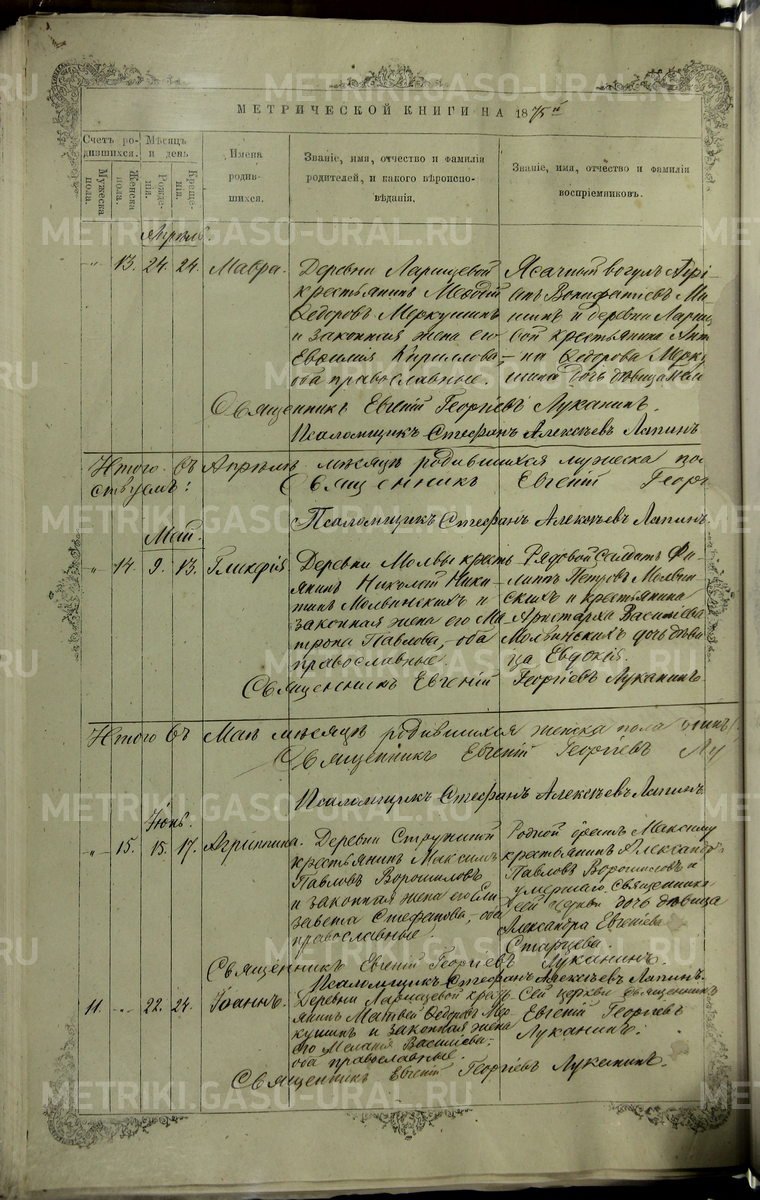 МЕТРИЧЕСКОЙ КНИГИ НА 1875й
Счетъ родившихся.
Мужеска пола.
Женска пола.
Мѣсяцъ и день
Рожденія.
Крещенія.
Имена родившихся.
Званіе, имя, отчество и фамилія родителей, и какого вѣроисповѣданія.
Званіе, имя, отчество и фамилія воспріемниковъ.
Апрѣль.
13. 24. 24. Мавра.
Деревни Ларищевой
крестьянинъ Меѳодій
Ѳедоровъ Меркушинъ
и законная жена его
Евѳилія Кирилова,
оба православные.
Ясачный вогулъ
Вонифатіевъ
и деревни
крестьянина
на Ѳедорова
дочь дѣвица
Священникъ Евгеній Георгіевъ Луканинъ.
Псаломщикъ Стефанъ Алексѣевъ Лапинъ
Итого въ Апрѣлѣ мѣсяцѣ родившихся мужеска
Священникъ Евгеній Георг
Псаломщикъ Стефанъ Алексѣевъ Лапинъ.
Май.
14. 9. 13. Гликерія
Деревни Молвы кресть
янинъ Николай Ники
тинъ Молвинскихъ и
законная жена его Ма
трона Павлова, оба
православные.
Рядовой Солдатъ Фи
липпъ Петровъ Молвин
скихъ и крестьянина
Аристарха Васильева
Молвинскихъ дочь дѣви
ца Евдокія.
Священникъ Евгеній Георгіевъ Луканинъ.
Итого въ Маѣ мѣсяцѣ родившихся женска пола одинъ
Священникъ Евгеній Георгіевъ Лу
Псаломщикъ Стефанъ Алексѣевъ Лапинъ
Іюнь.
15. 15. 17. Агриппина.
Деревни
крестьянинъ Максимъ
Павловъ Ворошиловъ
и законная жена его Ели
завета Стефанова, оба
православные.
Родной братъ Максиму
крестьянинъ Александръ
Павловъ Ворошиловъ и
умершаго священника
сей церкви дочь дѣвица
Александра Евгеніева
Старцева.
Священникъ Евгеній Георгіевъ Луканинъ.
Псаломщикъ Стефанъ Алексѣевъ Лапинъ.
11. 22. 24. Іоаннъ.
Деревни Ларищевой кресть
янинъ Матвей Ѳедоровъ Мер
кушинъ и законная жена
его Меланія Васильева,
оба православные.
Сей церкви священникъ
Евгеній Георгіевъ
Луканинъ.
Священникъ Евгеній Георгіевъ Луканинъ.
METRIKI.GASO-URAL.RU